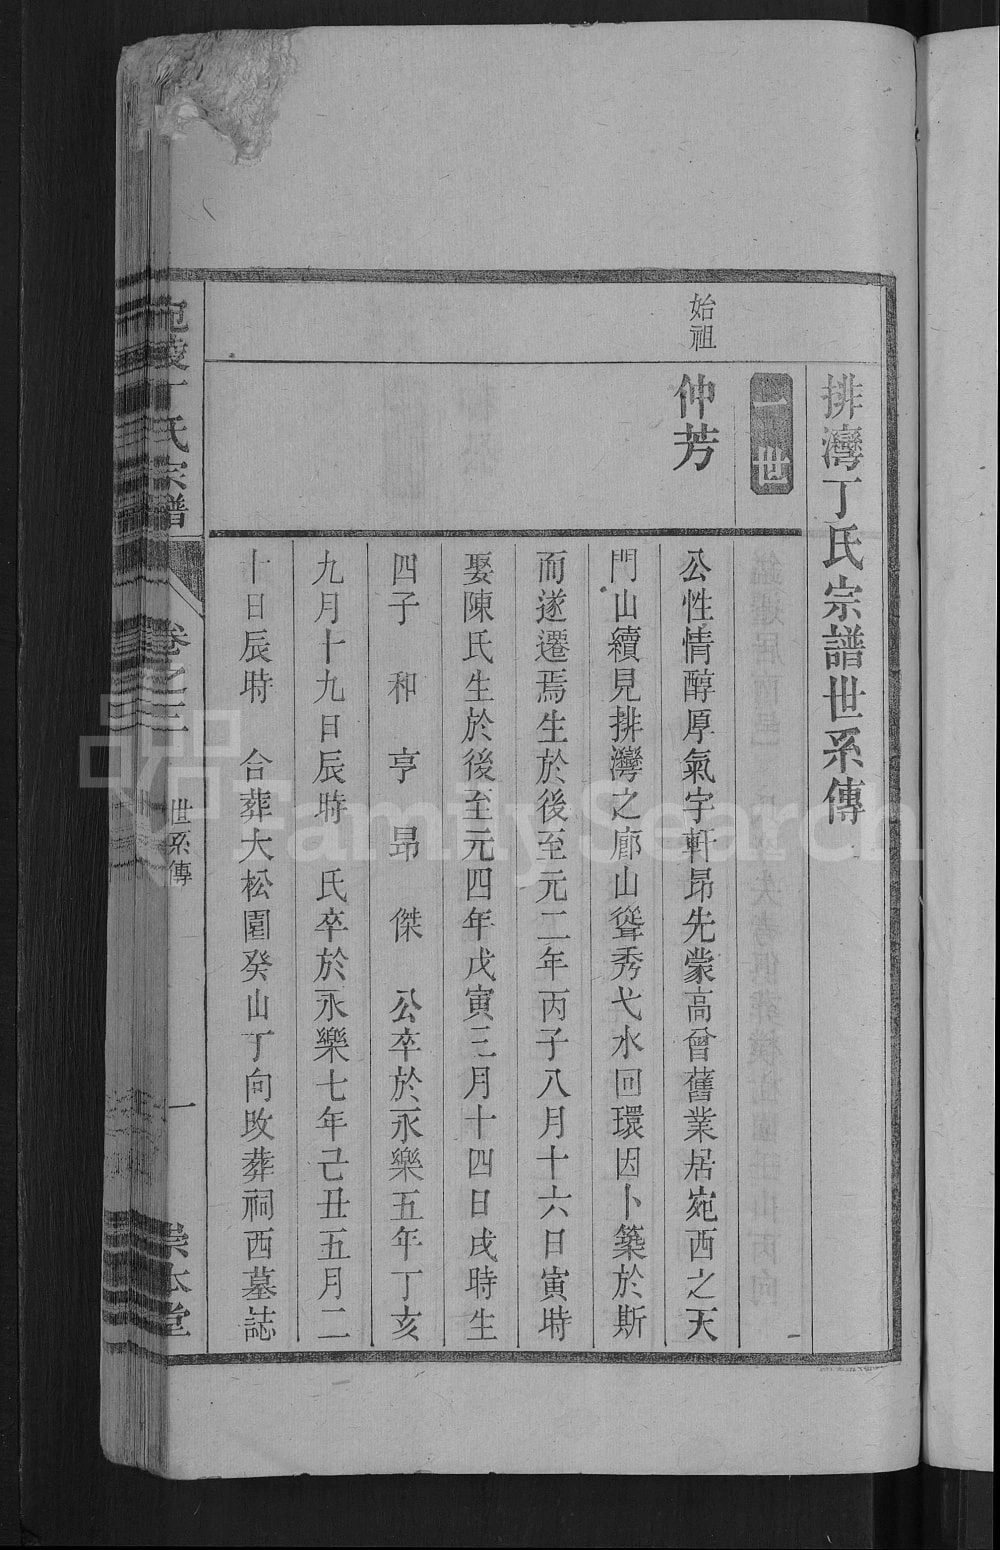 排灣丁氏宗譜世系傳
一世
始祖
仲芳
公性情醇厚氣宇軒昂先蒙高曾舊業居宛西之天
門山續見排灣之廊山聳秀弋水回環因卜築於斯
而遂遷焉生於後至元二年丙子八月十六日寅時
娶陳氏生於後至元四年戊寅三月十四日戌時生
四子 和 亨 昴 傑 公卒於永樂五年丁亥
九月十九日辰時 氏卒於永樂七年己丑五月二
十日辰時 合葬大松園癸山丁向改葬祠西墓誌
宛陵丁氏宗譜 卷之三 世系傳 一 崇本堂
FamilySearch